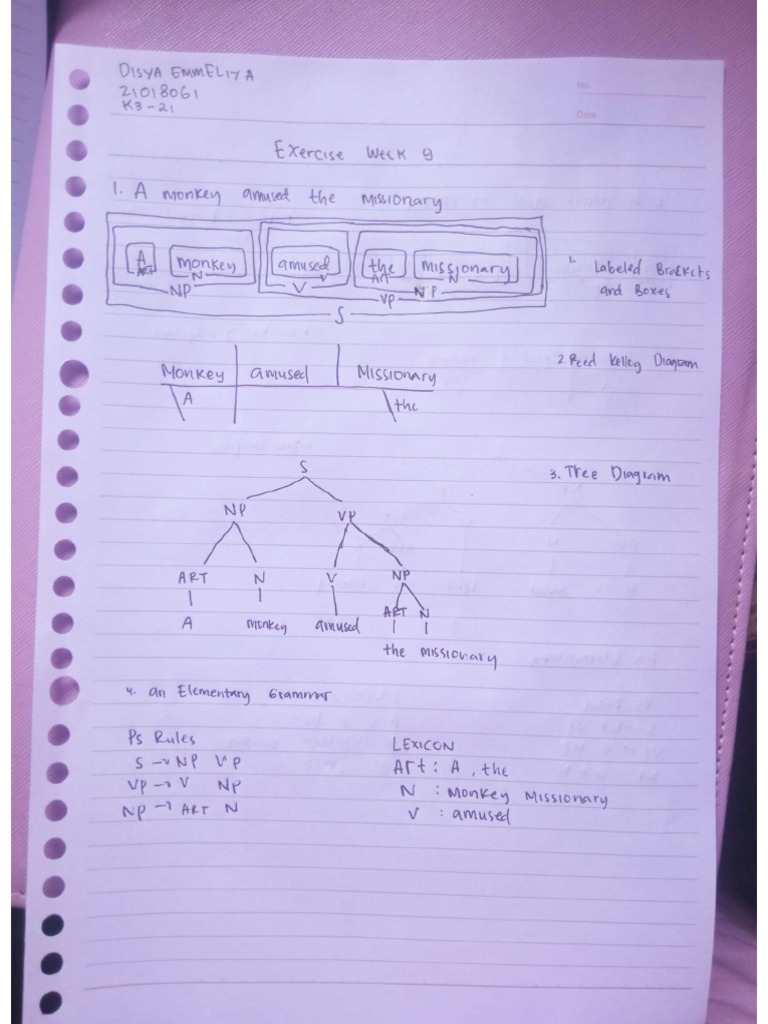 No.
Date
DISYA EMMELIYA
21018061
K3-21
Exercise Week 9
1. A monkey amused the missionary
A monkey amused the missionary
ART N V ART N
NP V NP
VP
S
1. Labeled Brackets
and Boxes
2. Reed Kellog Diagram
Monkey amused Missionary
A the
3. Tree Diagram
S
NP VP
ART N V NP
A monkey amused ART N
the missionary
4. an Elementary Grammar
Ps Rules
S → NP VP
VP → V NP
NP → ART N
LEXICON
Art : A, the
N : Monkey Missionary
V : amused